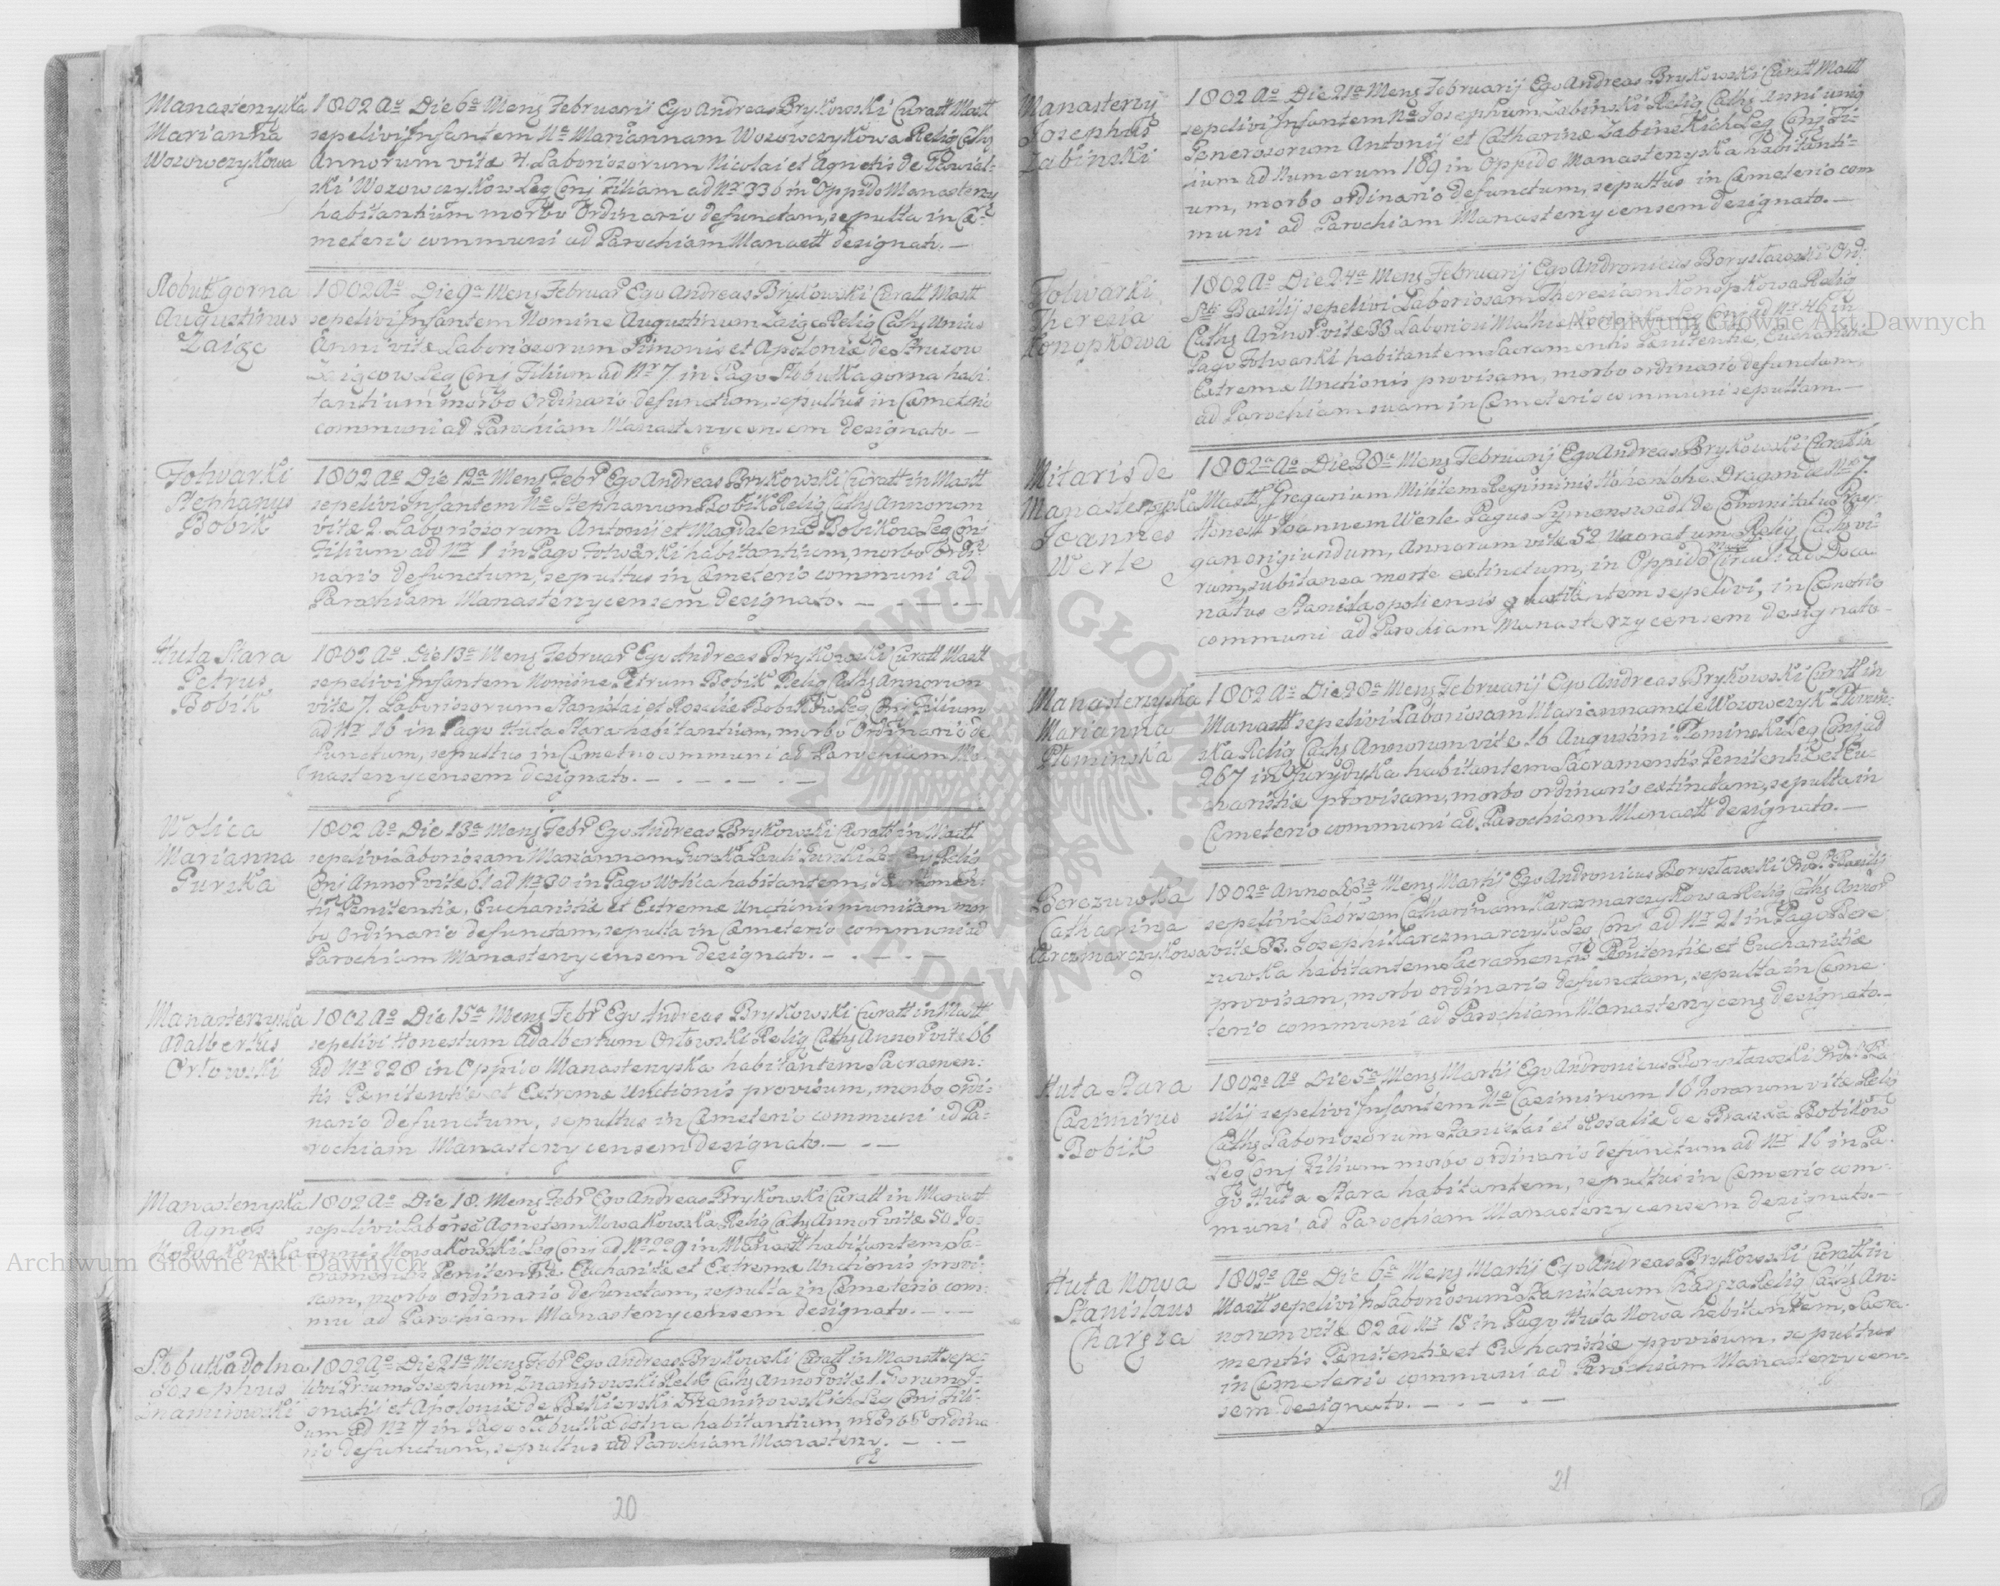 Manasterzyska
Marianna
Wozowczykowa
1802 Ao Die 6a Mens Februarij Ego Andreas Brykowski Curatt Mastt
sepelivi Infantem Ne Mariannam Wozowczykowa Relig Cath
Annorum vitæ 4. Laboriosorum Nicolai et Agnetis de
Wozowczykow Leg Conj Filiam ad Nr 336 in Oppido Manasterzy
habitantium morbo Ordinario defunctam, sepulta in Cæ-
meterio communi ad Parochiam Manastt designato. —
Slobutt gorna
Augustinus
Zaigo
1802 Ao Die 9a Mens Februar Ego Andreas Brykowski Curatt Mastt
sepelivi Infantem Nomine Augustinum Relig Cath Unius
Anni vitæ Laboriosorum Simonis et Apoloniæ de
Leg Conj Filium ad Nr 7 in Pago Slobutka gorna habi-
tantium morbo Ordinario defunctum, sepultus in Cæmeterio
communi ad Parochiam Manasterzycensem designato. —
Folwarki
Stephanus
Bobik
1802 Ao Die 12a Mens Febr Ego Andreas Brykowski Curatt in Mastt
sepelivi Infantem Ne Stephanum Bobik Relig Cath Annorum
vitæ 2. Laboriosorum Antonij et Magdalenæ Bobikow Leg Conj
Filium ad Nr 1 in Pago Folwarki habitantium, morbo Ordi-
nario defunctum, sepultus in Cæmeterio communi ad
Parochiam Manasterzycensem designato. — . — . —
Huta Stara
Petrus
Bobik
1802 Ao Die 13a Mens Februar Ego Andreas Brykowski Curatt Mastt
sepelivi Infantem Nomine Petrum Bobik Relig Cath Annorum
vitæ 7. Laboriosorum Stanislai et Rosaliæ Bobikow Leg Conj Filium
ad Nr 16 in Pago Huta Stara habitantium, morbo Ordinario de
functum, sepultus in Cæmeterio communi ad Parochiam Ma-
nasterzycensem designato. — . — . — . —
Wolica
Marianna
Gurska
1802 Ao Die 13a Mens Febr Ego Andreas Brykowski Curatt in Mastt
sepelivi Laboriosam Mariannam Gurska Pauli Gurski Leg Relig
Conj Annor vitæ 61 ad Nr 30 in Pago Wolica habitantem, Sacramen
tis Penitentiæ, Eucharistiæ et Extremæ Unctionis munitam mor
bo Ordinario defunctam, sepulta in Cæmeterio communi ad
Parochiam Manasterzycensem designato. — . — . —
Manasterzyska
Adalbertus
Orlowski
1802 Ao Die 15a Mens Febr Ego Andreas Brykowski Curatt in Mastt
sepelivi Honestum Adalbertum Orlowski Relig Cath Annor vitæ 66
ad Nr 328 in Oppido Manasterzyska habitantem Sacramen-
tis Pænitentiæ et Extremæ Unctionis provisum, morbo ordi-
nario defunctum, sepultus in Cæmeterio communi ad Pa-
rochiam Manasterzycensem designato. — . —
Manasterzyska
Agnes
Nowakowska
1802 Ao Die 18. Mens Febr Ego Andreas Brykowski Curatt in Manast
sepelivi Agnetem Nowakowska Relig Cath Annor vitæ 50 Jo-
annis Nowakowski Leg Conj ad Nr 209 in Manastt habitantem, Sa-
cramentis Penitentiæ Eucharistiæ et Extremæ Unctionis provi-
sam, morbo ordinario defunctam, sepulta in Cæmeterio com-
mu ad Parochiam Manasterzycensem designato. — . —
Slobutka dolna
Josephus
Znamirowski
1802 Ao Die 21a Mens Febr Ego Andreas Brykowski Curatt in Manastt sepe-
livi Josephum Znamirowski Relig Cath Annor vitæ 1.
et Apoloniæ de Leg Conj Fili-
um ad Nr 7 in Pago Slobutka dolna habitantium, morbo ordina
rio defunctum, sepultus ad Parochiam Manasterzy. — . —
20
Manasterzy
Josephus
Zabinski
1802 Ao Die 21a Mens Februarij Ego Andreas Brykowski Curatt Mastt
sepelivi Infantem Ne Josephum Zabinski Relig Cath Anni unig
Generosorum Antonij et Catharinæ Zabinskich Leg Conj Fi-
lium ad Numerum 189 in Oppido Manasterzyska habitanti-
um, morbo ordinario defunctum, sepultus in Cæmeterio com
muni ad Parochiam Manasterzycensem designato. —
Folwarki
Theresia
Konopkowa
1802 Ao Die 24a Mens Februarij Ego Andronicus Boryslawski Ord:
Sti Basilij sepelivi Laboriosam Theresiam Konopkowa Relig
Cath Annor vitæ 33 Laboriosi Leg Conj ad Nr 46 in
Pago Folwarki habitantem Sacramentis Penitentiæ, Eucharistiæ
Extremæ Unctionis provisam, morbo ordinario defunctam,
ad Parochiam suam in Cæmeterio communi sepultam —
Militaris de
Manasterzyska
Joannes
Werle
1802 Ao Die 28a Mens Februarij Ego Andreas Brykowski Curatt in
Mastt Gregarium Militem Regiminis Hohenlohe Dragonæ Nro 7.
Honestt Joannem Werle Pagus de Comitatus
oriundum, Annorum vitæ 52 uxoratum Relig
subitanea morte extinctum, in Oppido Circuli ad
natus Stanislaopoliensis sepelivi, in Cæmeterio
communi ad Parochiam Manasterzycensem designato —
Manasterzyska
Marianna
Plominska
1802 Ao Die 28a Mens Februarij Ego Andreas Brykowski Curatt in
Manastt sepelivi Laboriosam Mariannam de Wozowczyk Plomin-
ska Relig Cath Annorum vitæ 16 Augustini Plominski Leg Conj ad
267 in Jurydyka habitantem Sacramentis Penitentiæ et Eu-
charistiæ provisam, morbo ordinario extinctam, sepulta in
Cæmeterio communi ad Parochiam Manastt designato. —
Berezuwka
Catharina
Karczmarczykowa
1802a Anno Die 3a Mens Martij Ego Andronicus Boryslawski Ord: S Basilij
sepelivi Catharinam Karczmarczykowa Relig Cath Annor
vitæ 33. Josephi Karczmarczyk Leg Conj ad Nr 21 in Pago Bere-
zuwka habitantem Sacramentis Penitentiæ et Eucharistiæ
provisam, morbo ordinario defunctam, sepulta in Cæme-
terio communi ad Parochiam Manasterzycens designato —
Huta Stara
Casimirus
Bobik
1802 Ao Die 5a Mens Martij Ego Andronicus Boryslawski Ord S Ba
silij sepelivi Infantem Ne Casimirum 16 horarum vitæ Relig
Cath Laboriosorum Stanislai et Rosaliæ de Bobikow
Leg Conj Filium morbo ordinario defunctum ad Nr 16 in Pa-
go Huta Stara habitantem, sepultus in Cæmeterio com-
muni ad Parochiam Manasterzycensem designato. —
Huta Nowa
Stanislaus
Chargza
1802 Ao Die 6a Mens Martij Ego Andreas Brykowski Curatt in
Mastt sepelivi Laboriosum Stanislaum Relig Cath An-
norum vitæ 82 ad Nr 15 in Pago Huta Nowa habitantem, Sacra-
mentis Penitentiæ et Eucharistiæ provisum. sepultus
in Cæmeterio communi ad Parochiam Manasterzycen-
sem designato. — . — . —
21
Archiwum Główne Akt Dawnych
Archiwum Główne Akt Dawnych
ARCHIWUM GŁÓWNE AKT DAWNYCH